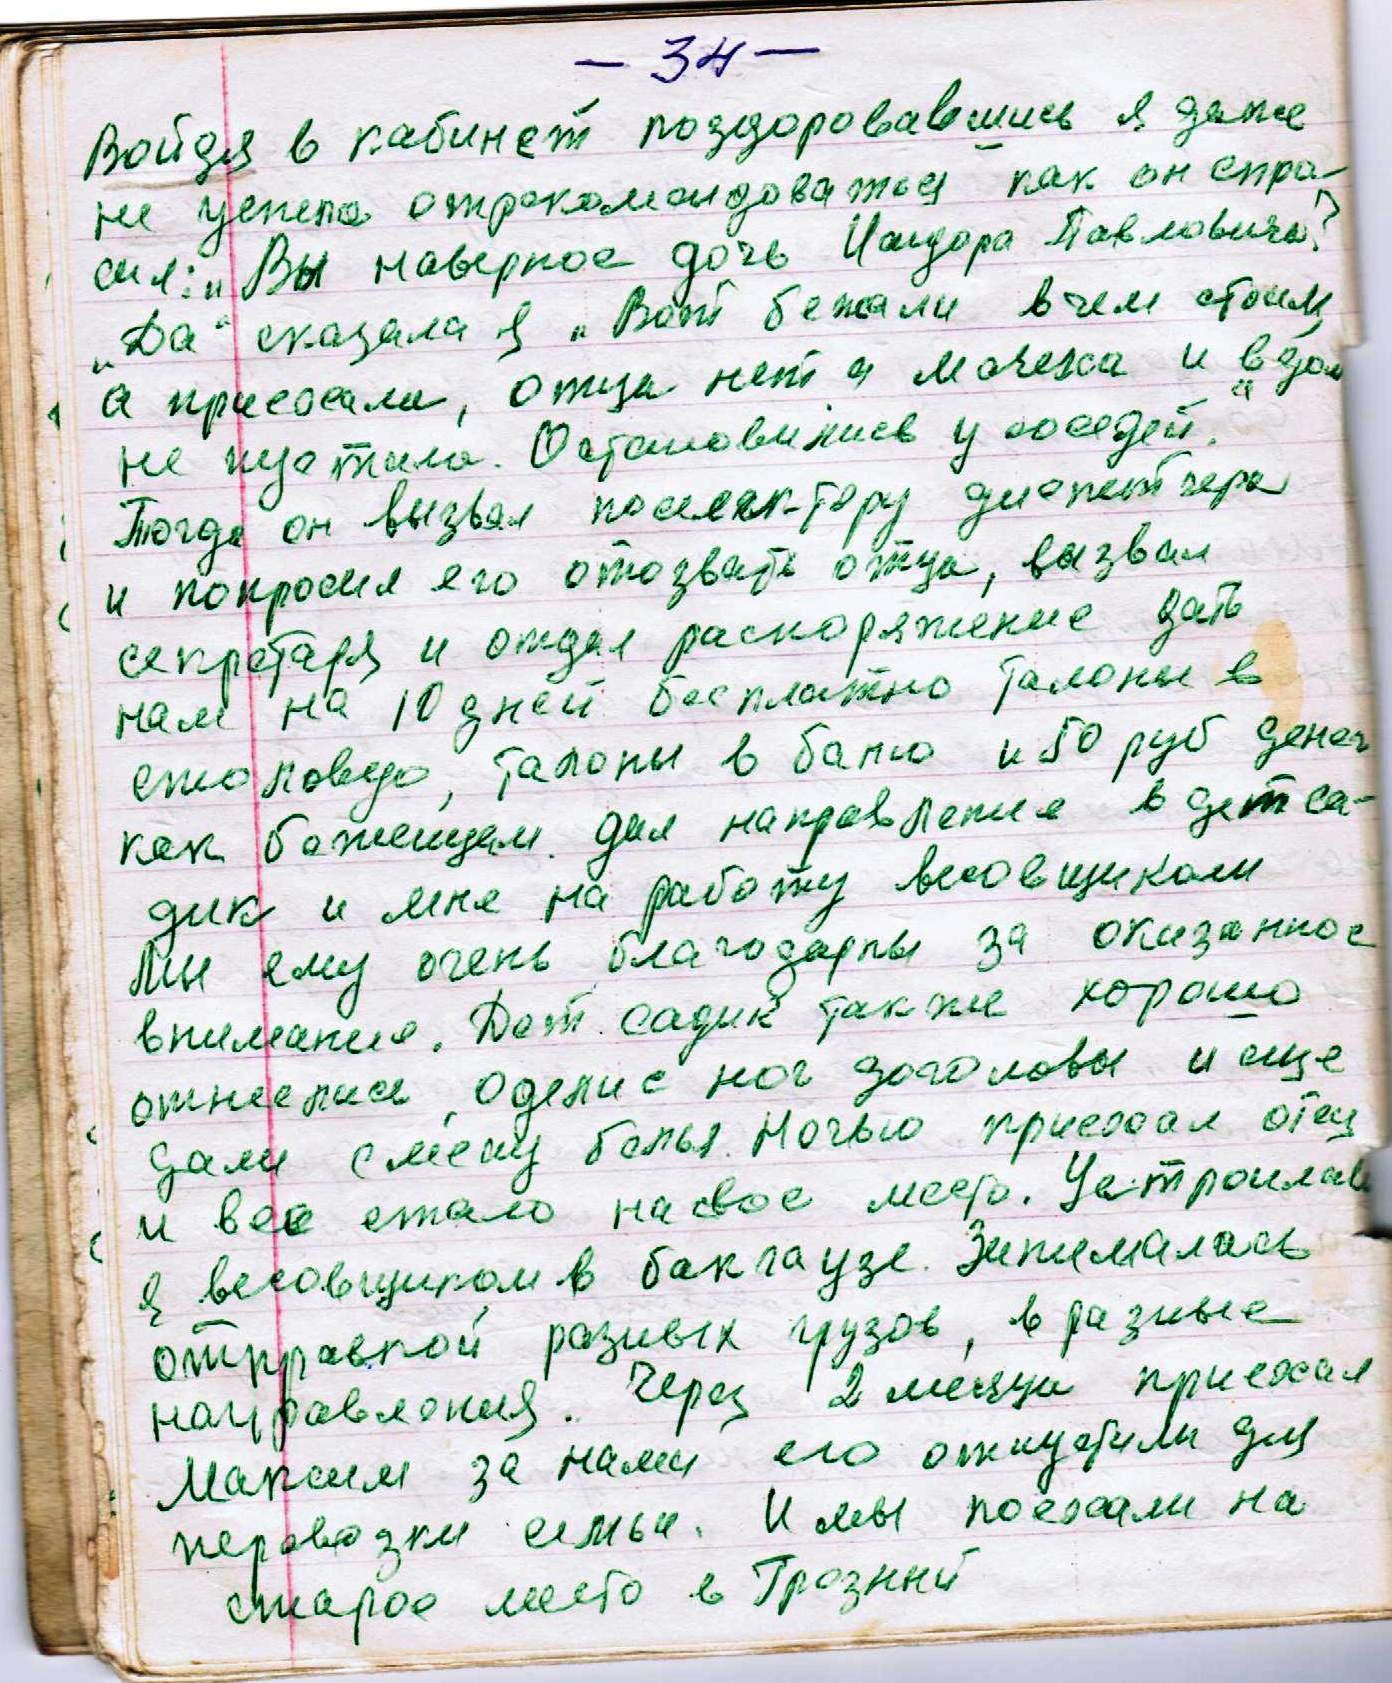 — 34 —
Войдя в кабинет поздоровавшись я даже
не успела отрекомендоваться как он спро-
сил: „Вы наверное дочь Исидора Павловича?
„Да“ сказала я „Вот бежали в чем стоим,
а приехали, отца нет и мачеха и в дом
не пустила. Остановились у соседей.“
Тогда он вызвал поселектору диспетчера
и попросил его отозвать отца, вызвал
секретаря и отдал распоряжение дать
нам на 10 дней бесплатно талоны в
столовую, талоны в баню и 50 руб денег
как беженцам. дал направление в детса-
дик и мне на работу весовщиком
Мы ему очень благодарны за оказанное
внимание. Дет. садик также хорошо
отнеслись, одели с ног доголовы и еще
дали смену белья. Ночью приехал отец
и все стало на свое место. Устроилась
я весовщиком в бакгаузе. Занималась
отправкой разных грузов, в разные
направления. Через 2 месяца приехал
Максим за нами его отпустили для
перевозки семьи. И мы поехали на
старое место в Грозный